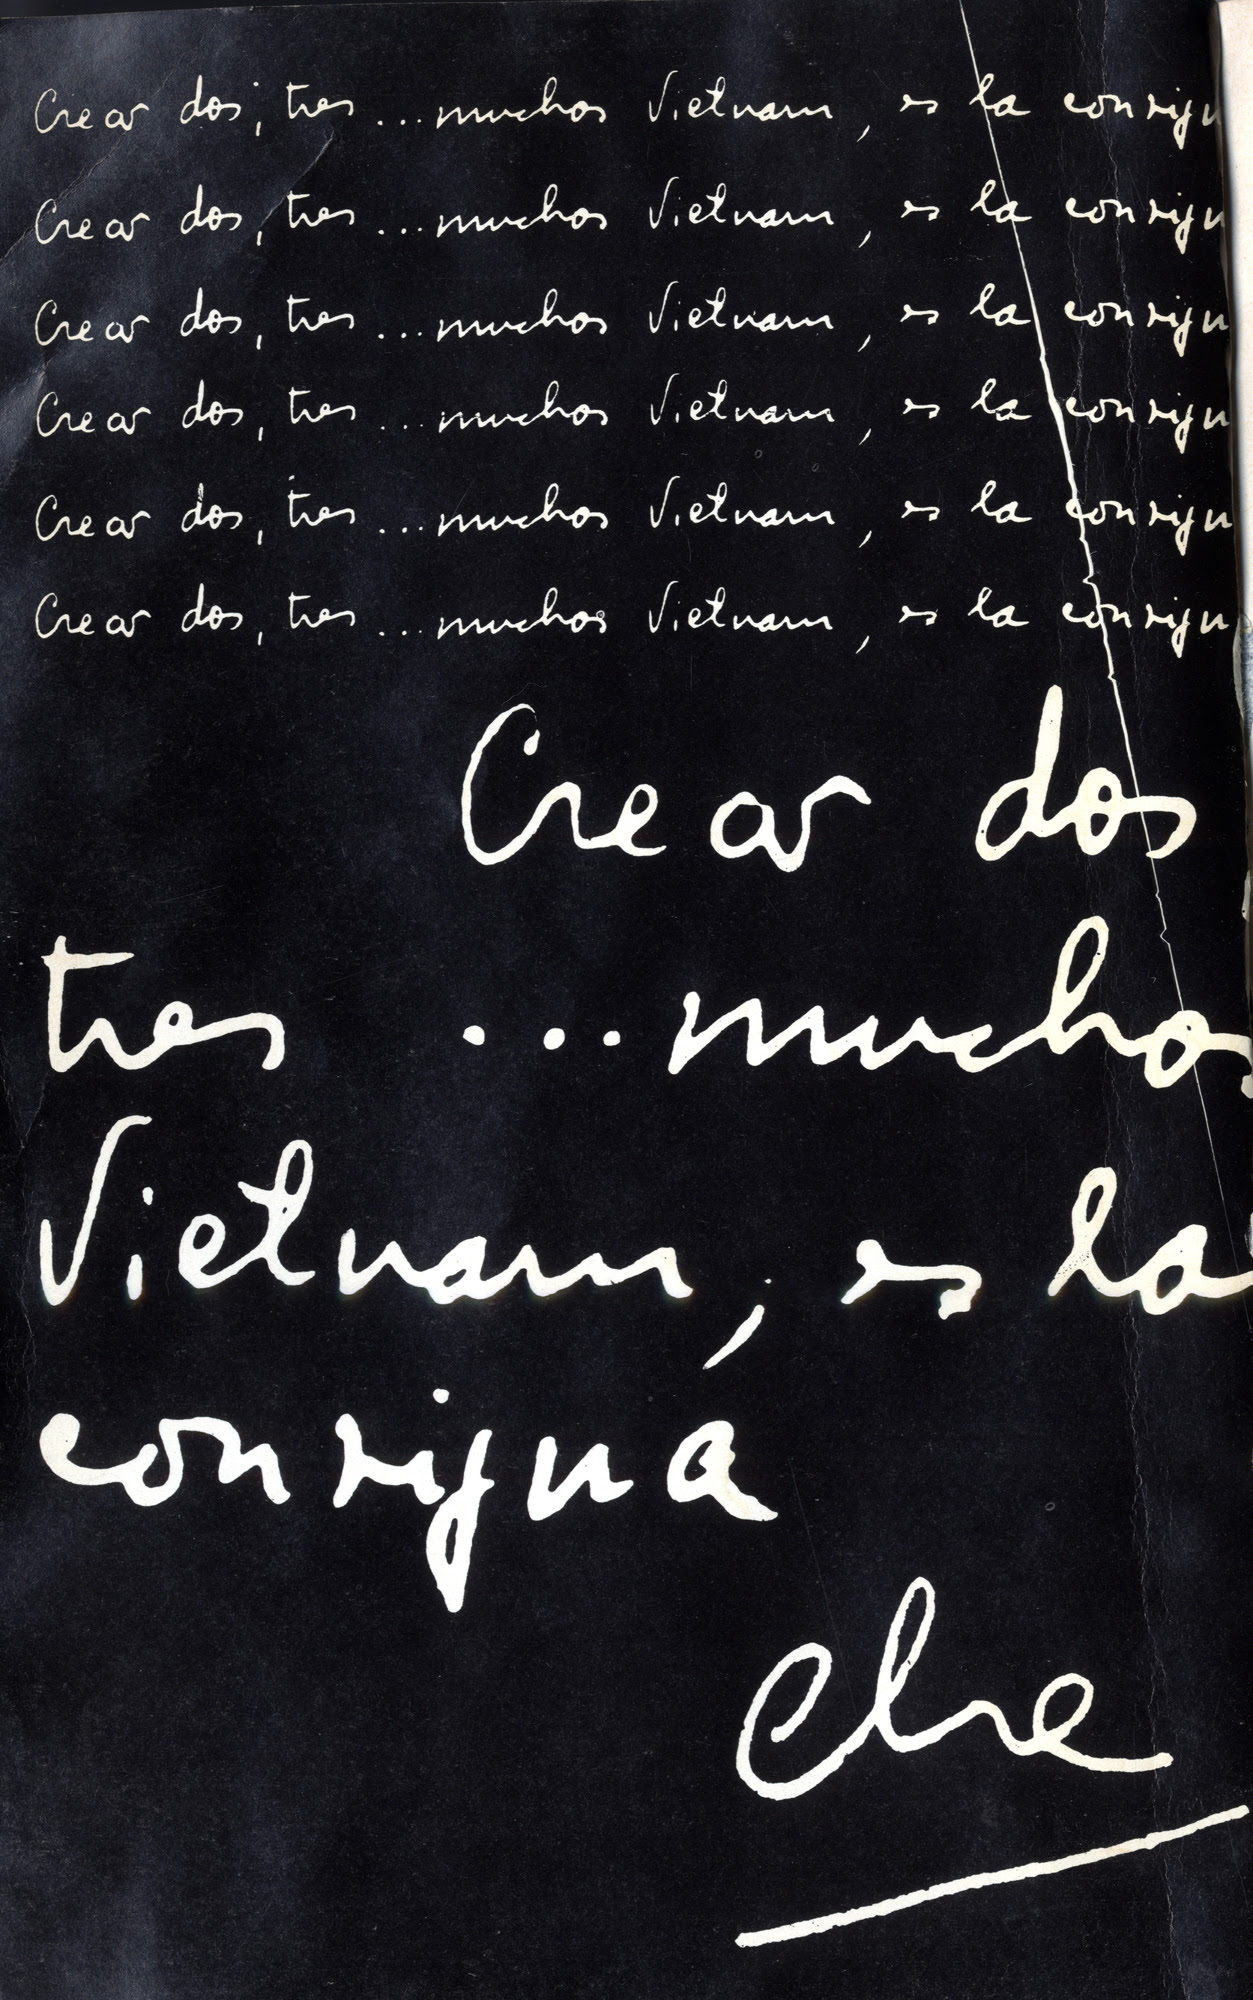 Crear dos, tres ...muchos Vietnam, es la consign
Crear dos, tres ...muchos Vietnam, es la consign
Crear dos, tres ...muchos Vietnam, es la consign
Crear dos, tres ...muchos Vietnam, es la consign
Crear dos, tres ...muchos Vietnam, es la consign
Crear dos, tres ...muchos Vietnam, es la consign
Crear dos
tres ...muchos
Vietnam, es la
consigna
Che